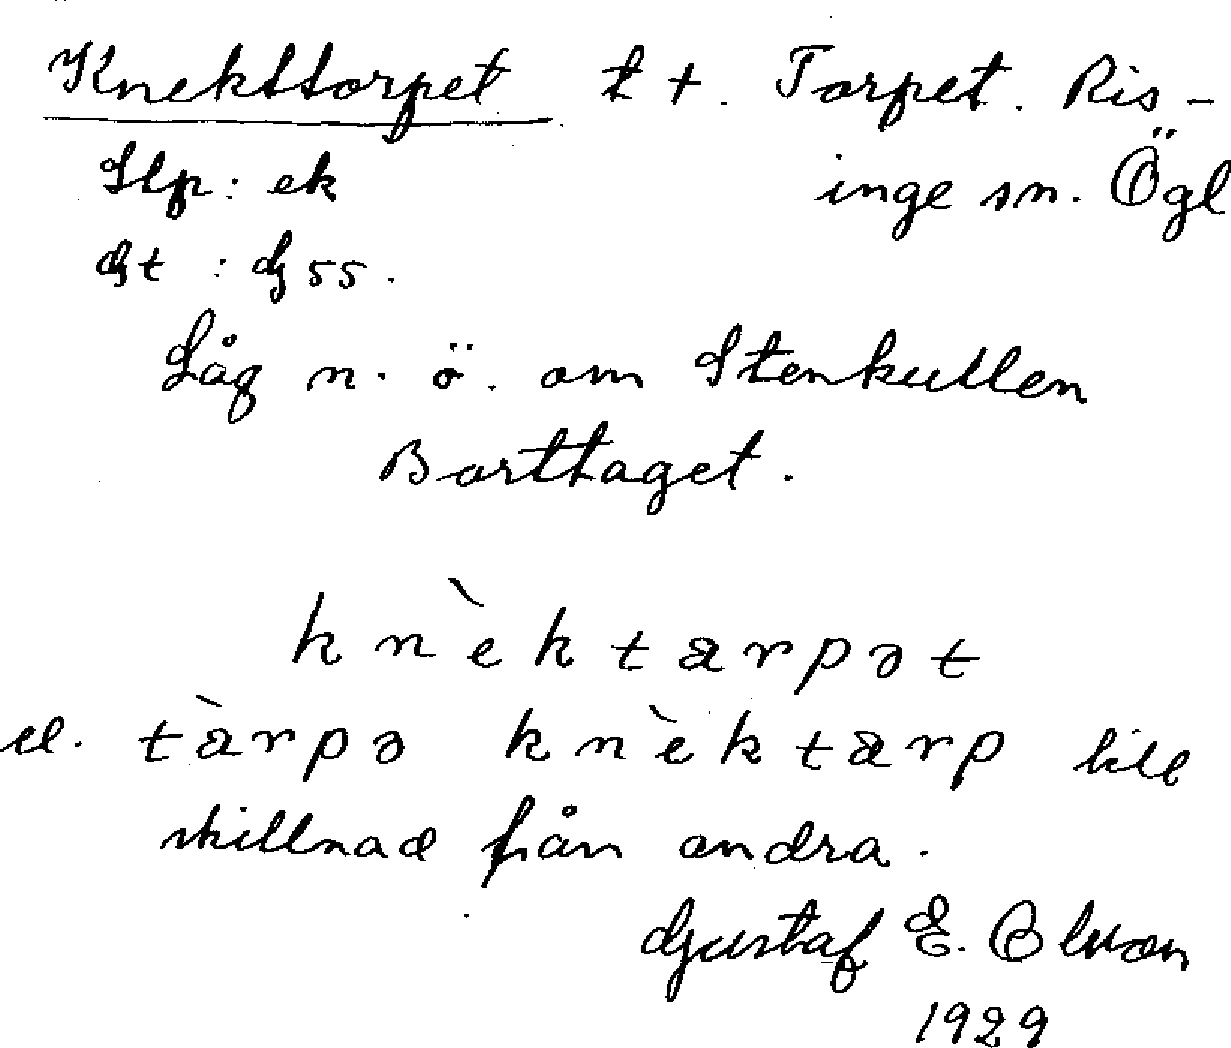 Knekttorpet t t. Torpet. Ris-
Slp: ek inge sn. Ögl
Gt : G 55.
Låg n. ö. om Stenkullen
Borttaget.
k n è k t a r p ə t
el. t à r p ə k n è k t a r p till
skillnad från andra.
Gustaf E. Olsson
1929